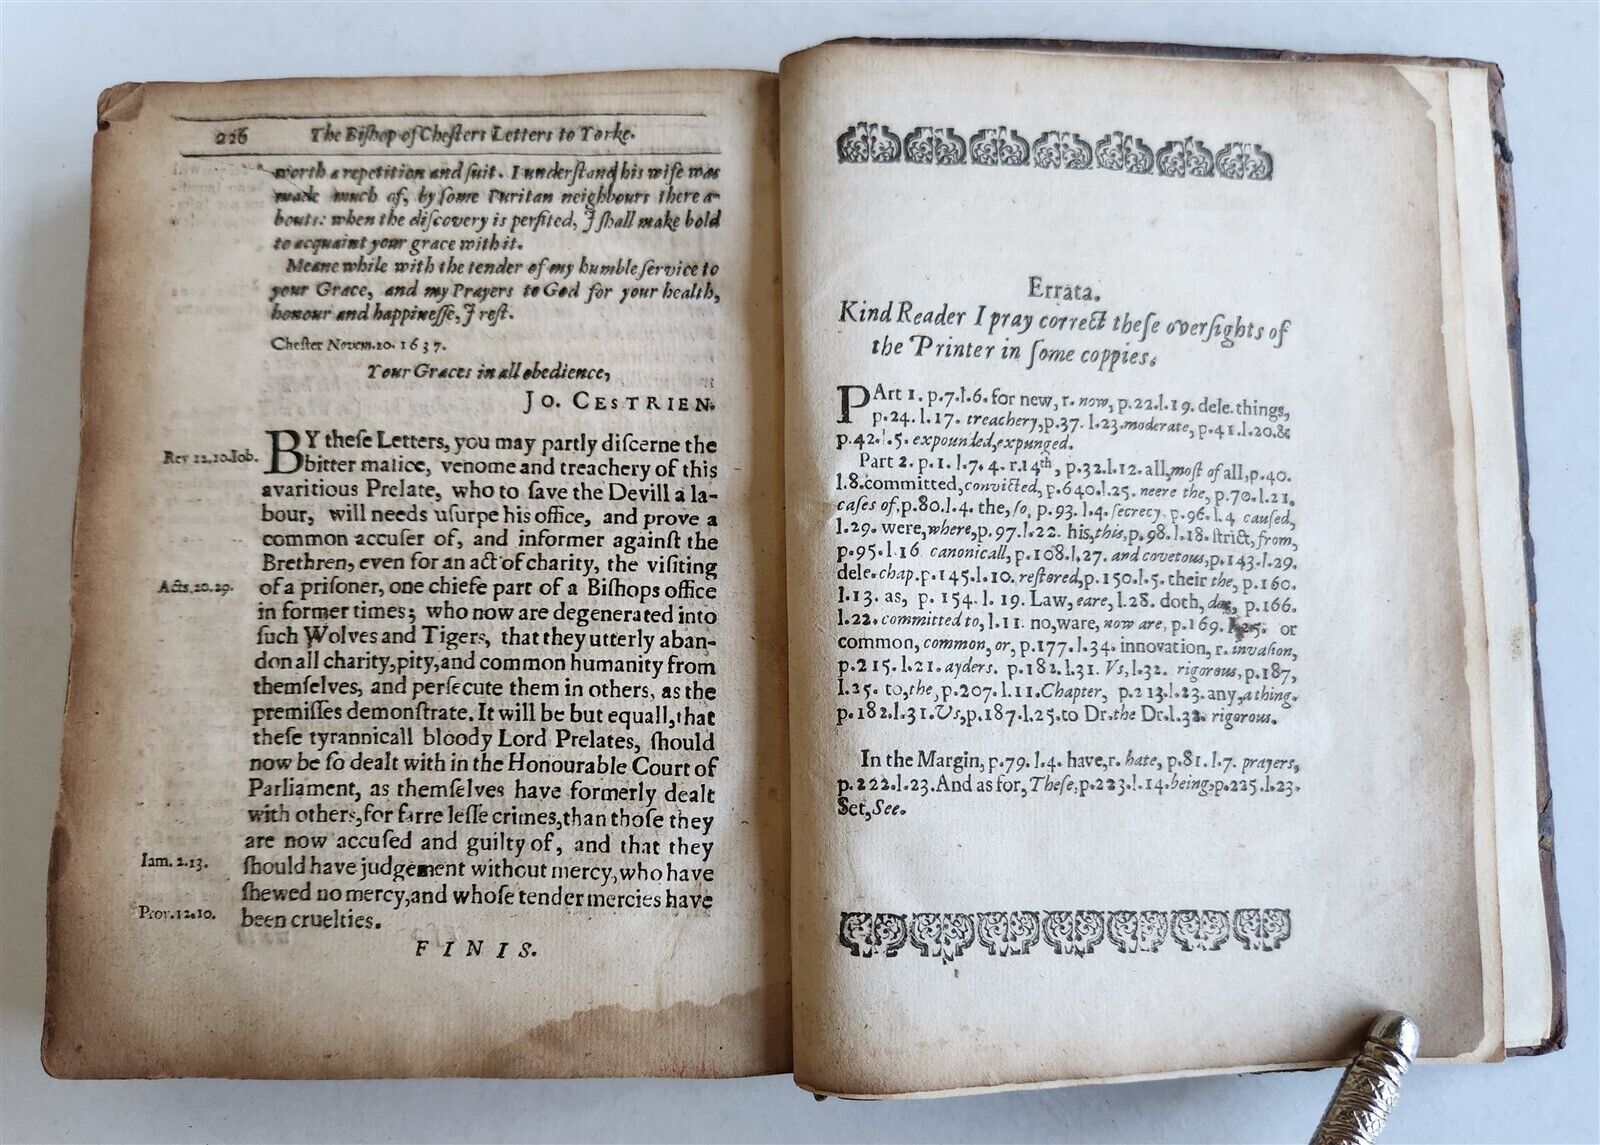 226 The Bishop of Chesters Letters to Yorke.
worth a repetition and suit. I understand his wife was
made much of, by some Puritan neighbours there a-
bouts: when the discovery is perfited, I shall make bold
to acquaint your grace with it.
Meane while with the tender of my humble service to
your Grace, and my Prayers to God for your health,
honour and happinesse, I rest.
Chester Novem. 20. 1637.
Your Graces in all obedience,
JO. CESTRIEN.
BY these Letters, you may partly discerne the
Rev 12.10. Iob. bitter malice, venome and treachery of this
avaritious Prelate, who to save the Devill a la-
bour, will needs usurpe his office, and prove a
common accuser of, and informer against the
Brethren, even for an act of charity, the visiting
Acts. 20. 29. of a prisoner, one chiefe part of a Bishops office
in former times; who now are degenerated into
such Wolves and Tigers, that they utterly aban-
don all charity, pity, and common humanity from
themselves, and persecute them in others, as the
premisses demonstrate. It will be but equall, that
these tyrannicall bloody Lord Prelates, should
now be so dealt with in the Honourable Court of
Parliament, as themselves have formerly dealt
with others, for farre lesse crimes, than those they
are now accused and guilty of, and that they
Iam. 2.13. should have judgement without mercy, who have
shewed no mercy, and whose tender mercies have
Prov. 12.10. been cruelties.
FINIS.
Errata.
Kind Reader I pray correct these oversights of
the Printer in some coppies.
PArt 1. p.7.l.6. for new, r. now, p.22.l.19. dele. things,
p.24. l.17. treachery, p.37. l.23. moderate, p.41.l.20.&
p.42.l.5. expounded, expunged.
Part 2. p.1. l.7. 4. r.14th, p.32.l.12. all, most of all, p.40.
l.8. committed, convicted, p.640.l.25. neere the, p.70.l.21.
cases of, p.80.l.4. the, so, p.93.l.4. secrecy. p.96.l.4 caused,
l.29. were, where, p.97.l.22. his, this, p.98.l.18. strict, from,
p.95.l.16 canonicall, p.108.l.27. and covetous, p.143.l.29.
dele. chap. p.145.l.10. restored, p.150.l.5. their the, p.160.
l.13. as, p. 154. l. 19. Law, eare, l.28. doth, p.166.
l.22. committed to, l.11. no, ware, now are, p.169. l.25. or
common, common, or, p.177.l.34. innovation, r. invasion,
p.215.l.21. ayders. p.182.l.31. Vs, l.32. rigorous, p.187,
l.25. to, the, p.207. l.11. Chapter, p.213.l.23. any, a thing.
p.182.l.31. Us, p.187.l.25. to Dr. the Dr. l.32. rigorous.
In the Margin, p.79. l.4. have, r. hate, p.81. l.7. prayers,
p.222.l.23. And as for, These, p.223.l.14. being, p.225.l.23.
Set, See.